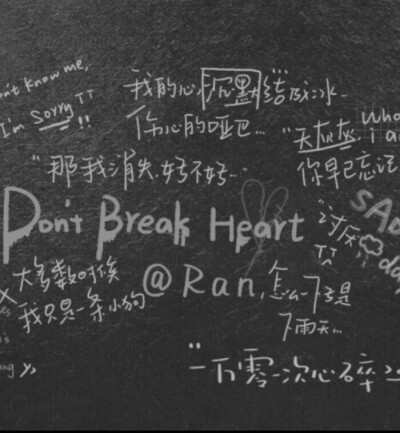 n't know me,
I'm sorry TT
!!
我的心,沉默结成冰...
伤心的哑巴...
"天灰灰.
你早已忘记
"那我消失.好不好..."
Don't Break Heart
SAD
day
"讨厌
TT
@Ran.
大多数时候
我只是一条小狗
怎么了
是下雨天...
"一万零一次心碎